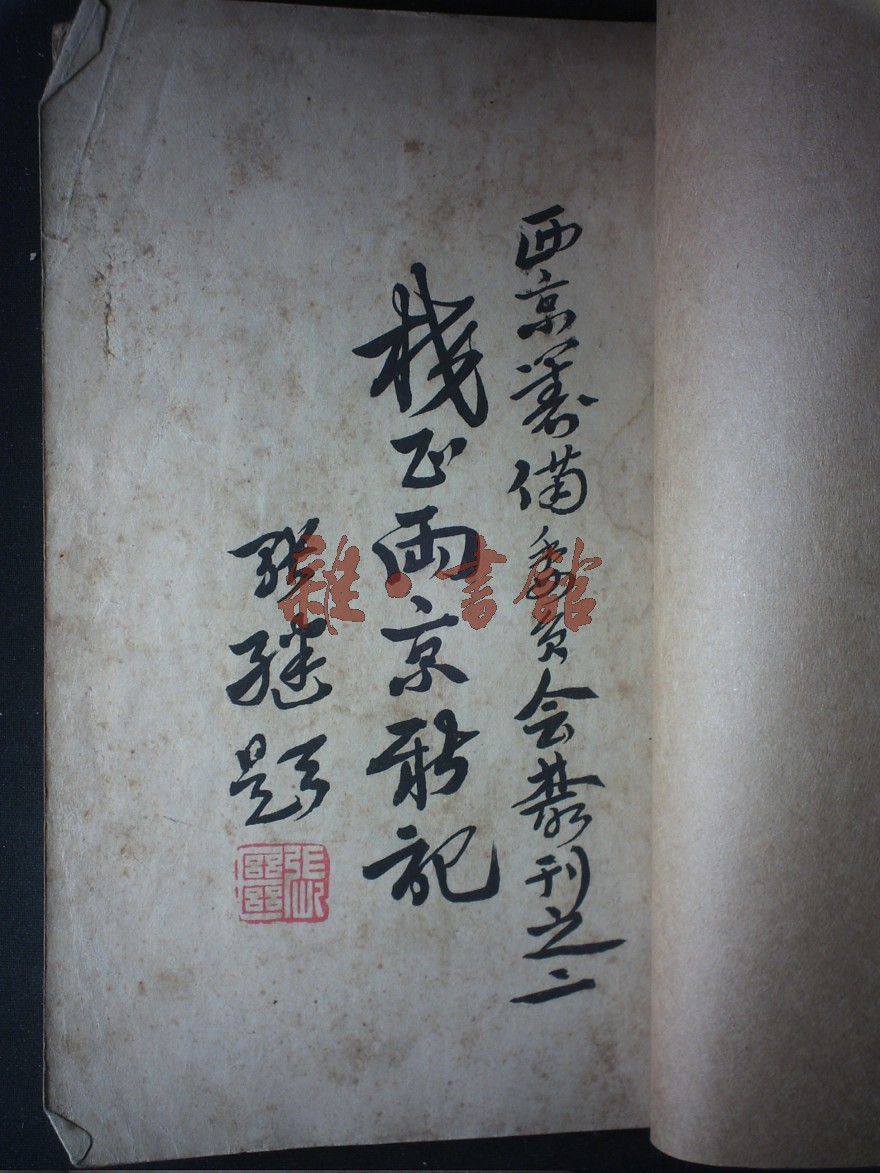 西京籌備委員会叢刊之二
校正兩京新記
張繼題
雜·書館